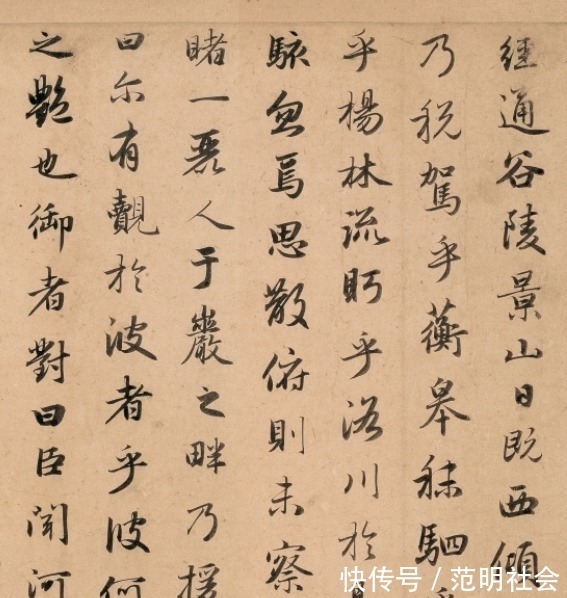 經通谷陵景山日既西傾
乃税駕乎蘅皋秣駟
乎楊林流眄乎洛川於
駭忽焉思散俯則未察
睹一麗人于巖之畔乃援
曰尔有覿於彼者乎彼何
之豔也御者對曰臣聞河
快传号／范明社会